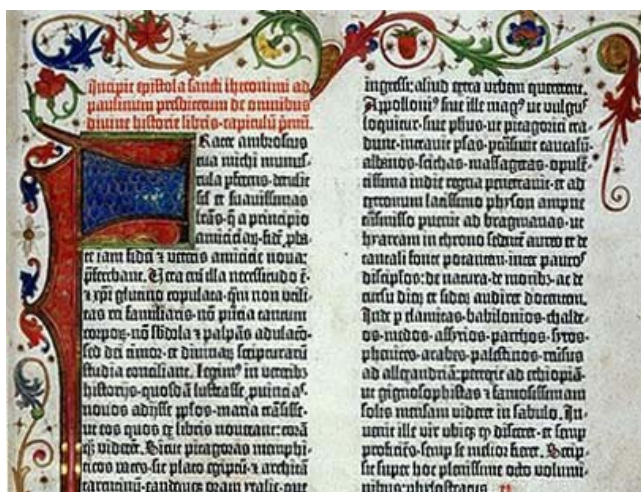 Incipit epistola sancti iheronimi ad
paulinum presbiterum de omnibus
divine historie libris. capitulū pmū.
Frater ambrosius
tua michi munus-
cula pferens. detulit
sił et suavissimas
lrās. q a principio
amiciciaꝝ. fidē pba-
te iam fidei ⁊ veteris amicicie nova:
pferebant. Vera eni illa necessitudo ē.
⁊ xpi glutino copulata: qm non utili-
tas rei familiaris. nō pntia tantum
corporꝝ. nō sbdola ⁊ palpās adulacō.
sed dei timor. et divinaꝝ scripturarū
studia conciliant. Legimꝰ in veteribꝫ
historijs. quosdā lustrasse puīcias.
novos adijsse pplos. maria trāsisse.
ut eos quos ex libris noverant: corā
qꝫ viderēt. Sicut pitagoras memphi-
ticos vates. sic plato egiptū. ⁊ architā
tarentinū. eandemqꝫ oram ytalie. que
ingressi: aliud extra urbem quererent.
Appolloniꝰ sive ille magꝰ ut vulgꝰ
loquitur. sive phus. ut pitagorici tra-
dunt. intravit psas. ptrāsivit caucasū.
albanos. scithas. massagetas. opulē-
tissima indie regna penetravit. et ad
extremum latissimo physon ampne
trāsmisso puenit ad bragmanas. ut
hyarcam in throno sedentē aureo et de
tantali fonte potantem. inter paucos
discipłos: de natura. de moribꝫ. ac de
cursu dieꝝ et sideꝝ audiret docentem.
Inde p elamitas. babilonios. chalde-
os. medos. assyrios. parthos. syros.
phenices. arabes. palestinos. reversus
ad allexandriā: perrexit ad ethiopiā.
ut gignosophistas ⁊ famosissimam
solis mensam videret in sabulo. In-
venit ille vir ubiqꝫ qd disceret. et semp
proficiēs. semp se melior fieret. Scrip-
sit super hoc plenissime octo volumi-
nibus: phylostratus.